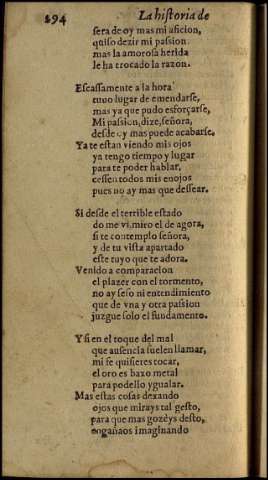 294 La historia de
sera de oy mas mi aficion,
quiso dezir mi passion
mas la amorosa herida
le ha trocado la razon.
Escassamente a la hora
tuuo lugar de emendarse,
mas ya que pudo esforçarse,
Mi passion, dize, señora,
desde oy mas puede acabarse.
Ya te estan viendo mis ojos
ya tengo tiempo y lugar
para te poder hablar,
cessen todos mis enojos
pues no ay mas que dessear.
Si desde el terrible estado
do me vi, miro el de agora,
si te contemplo señora,
y de tu vista apartado
este tuyo que te adora.
Venido a comparacion
el plazer con el tormento,
no ay seso ni entendimiento
que de vna y otra passion
juzgue solo el fundamento.
Y si en el toque del mal
que ausencia suelen llamar,
mi fe quisieres tocar,
el oro es baxo metal
para podello ygualar.
Mas estas cosas dexando
ojos que mirays tal gesto,
para que mas gozeys desto,
engañaos imaginando